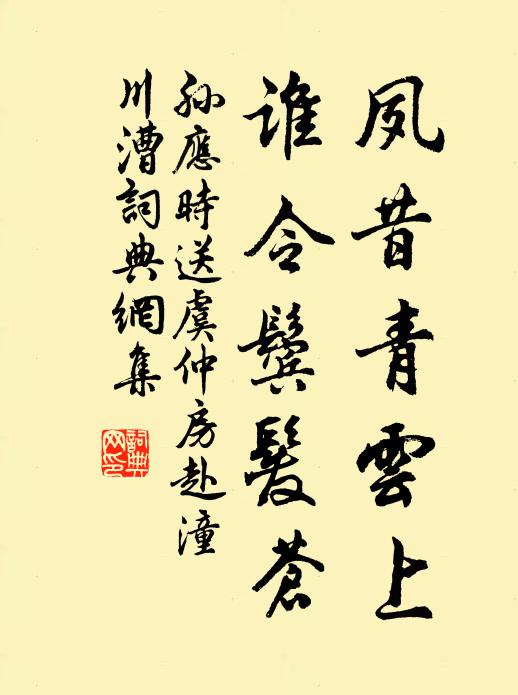 夙昔青雲上
誰令鬢髮蒼
孫應時送虞仲房赴潼
川漕詞典網集
詞典
网印